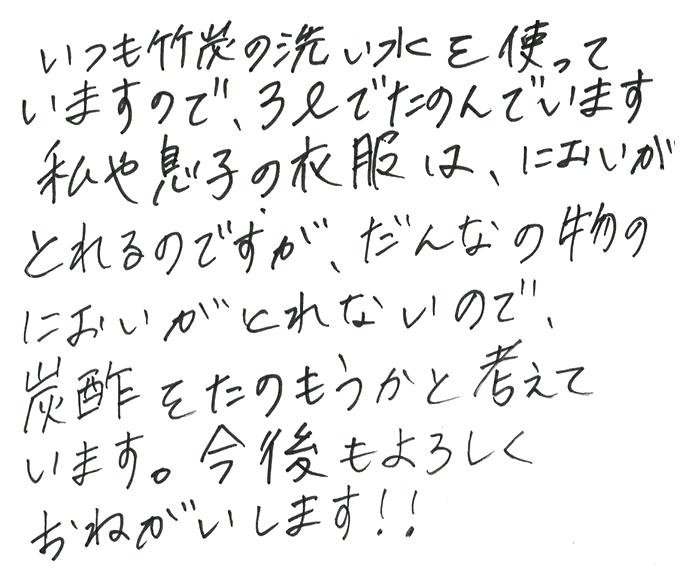 いつも竹炭の洗い水を使って
いますので、3ℓでたのんでいます
私や息子の衣服は、においが
とれるのですが、だんなの物の
においがとれないので、
炭酢をたのもうかと考えて
います。今後もよろしく
おねがいします!!